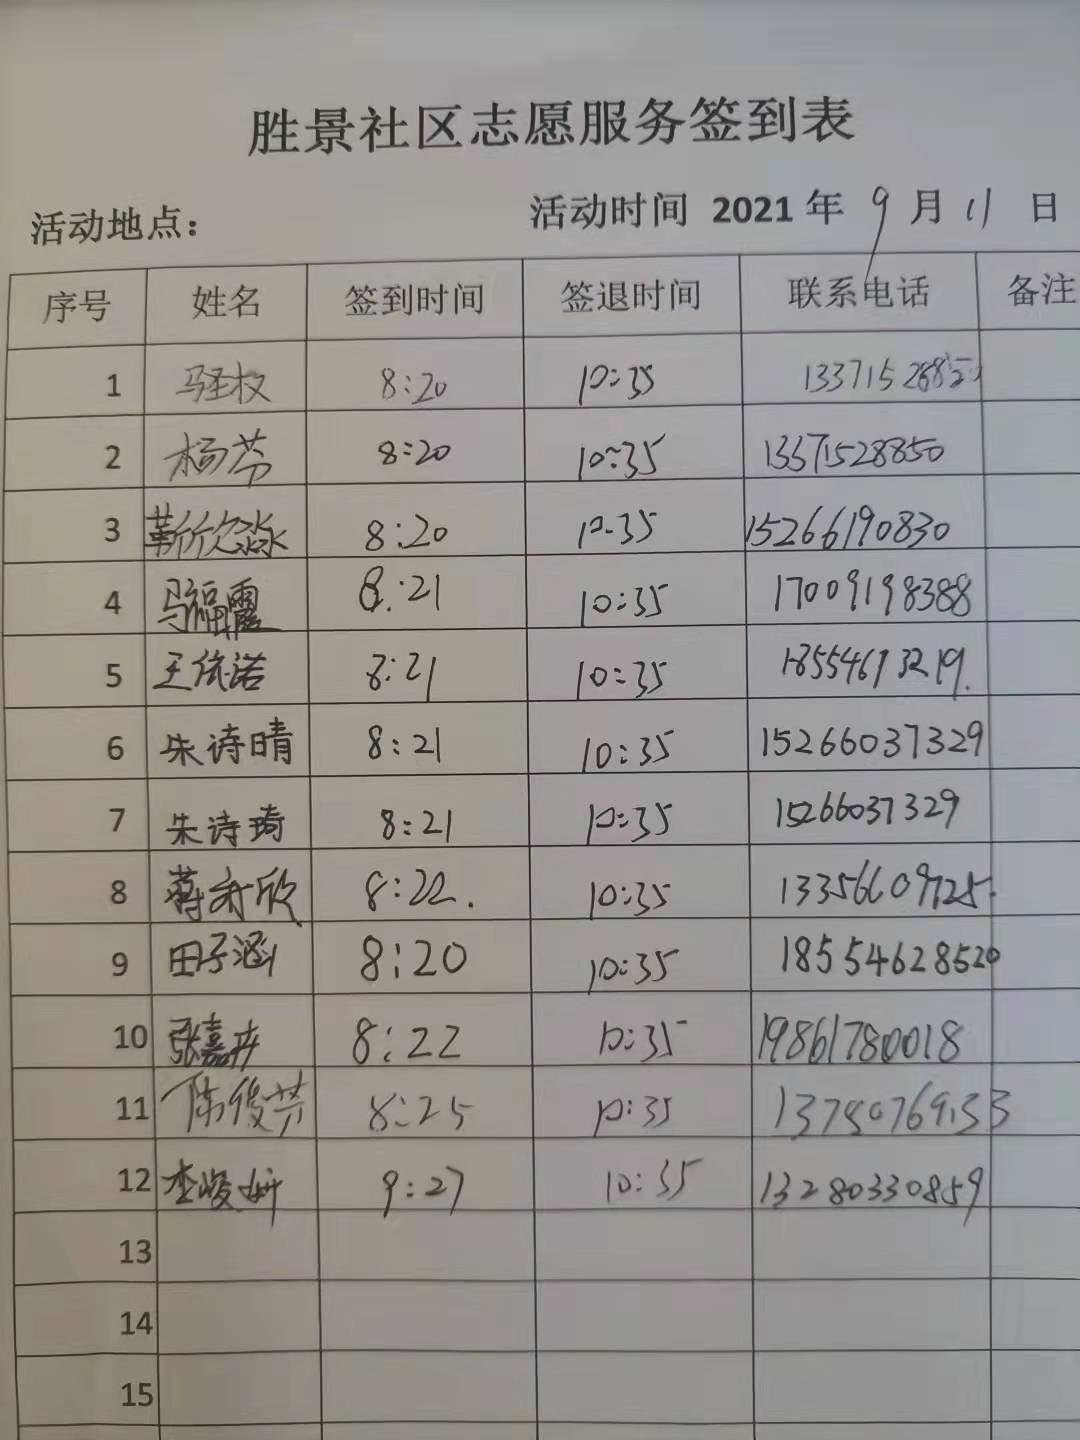 胜景社区志愿服务签到表
活动地点： 活动时间 2021 年 9 月 11 日
序号 姓名 签到时间 签退时间 联系电话 备注
1 8:20 10:35
2 杨芩 8:20 10:35 13371528850
3 靳欣淼 8:20 10:35 15266190830
4 马福霞 8:21 10:35 17009198388
5 王依诺 8:21 10:35 18554613219.
6 朱诗晴 8:21 10:35 15266037329
7 朱诗琦 8:21 10:35 15266037329
8 欣 8:22. 10:35 13356609725.
9 田子涵 8:20 10:35 18554628520
10 张嘉卉 8:22 10:35 19861780018
11 陈俊芳 8:25 10:35 13780769133
12 李峻妍 9:27 10:35 13280330859
13
14
15